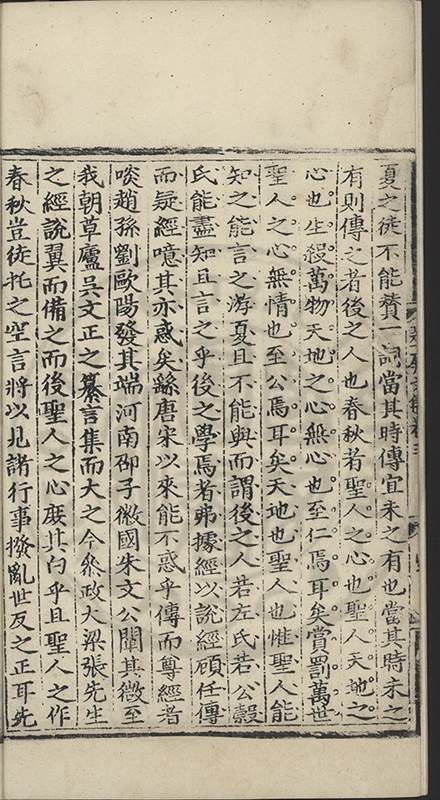 夏之徒不能賛一詞當其時傳宜未之有也當其時未之
有則傳之者後之人也春秋若聖人之心也聖人天地之
心也生殺萬物天地之心無心也至仁焉耳矣賞罰萬世
聖人之心無情也至公焉耳矣天地也聖人也惟聖人能
知之能言之游夏且不能與而謂後之人若左氏若公穀
氏能盡知且言之乎後之學焉者弗據經以說經顧任傳
而疑經噫其亦惑矣繇唐宋以來能不惑乎傳而尊經者
啖趙孫劉歐陽發其端河南邵子徽國朱文公闡其微至
我朝草廬吳文正之纂言集而大之今叅政大梁張先生
之經說翼而備之而後聖人之心庶其白乎且聖人之作
春秋豈徒托之空言將以見諸行事撥亂世反之正耳先